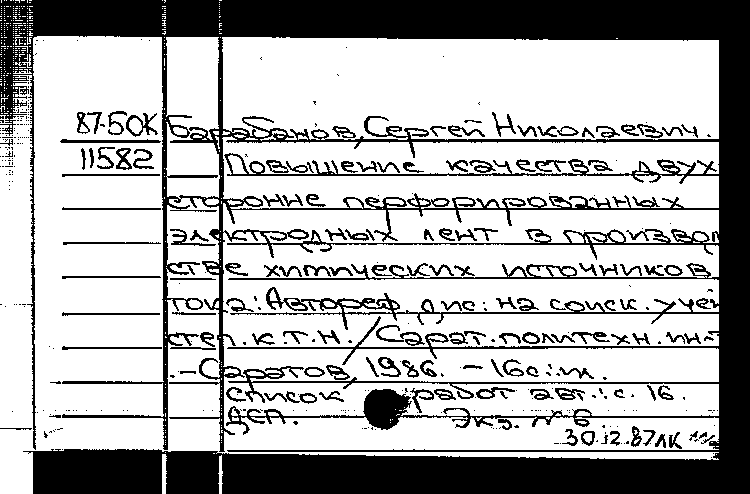 87-50К Барабанов, Сергей Николаевич.
11582 Повышение качества двух
сторонне перфорированных
электродных лент в производ
стве химических источников
тока: Автореф. дис. на соиск. учен
степ. к.т.н. / Сарат. политехн. ин-т
.-Саратов, 1986. - 16с.: ил.
Список работ авт.: с. 16.
ДСП. Экз. №6
30.12.87 ЛК